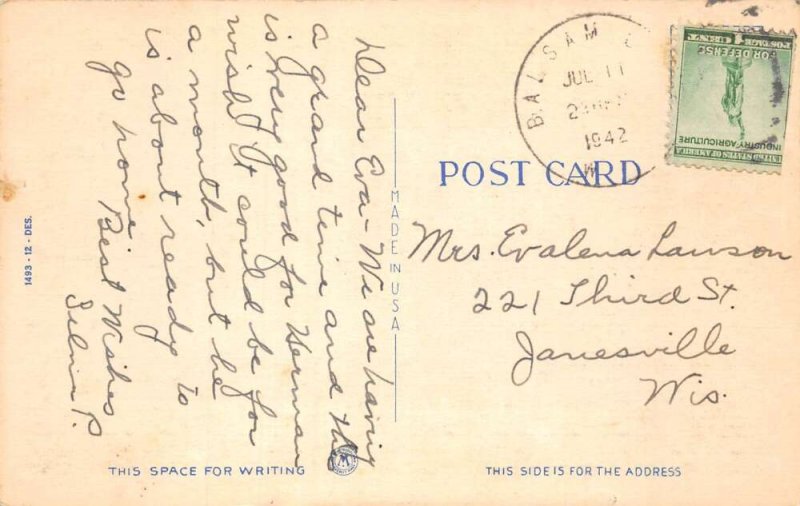 Dear Eva - We are having
a grand time and this
is very good for Herman
wish it could be for
a month, but he
is about ready to
go home
Best Wishes
Selma P.
MADE IN USA
1493 - 12 - DES.
THIS SPACE FOR WRITING
BALSAM
JUL 11
1942
W
UNITED STATES OF AMERICA
INDUSTRY AGRICULTURE
FOR DEFENSE
POSTAGE 1 CENT
POST CARD
Mrs. Evalena Lawson
221 Third St.
Janesville
Wis.
THIS SIDE IS FOR THE ADDRESS